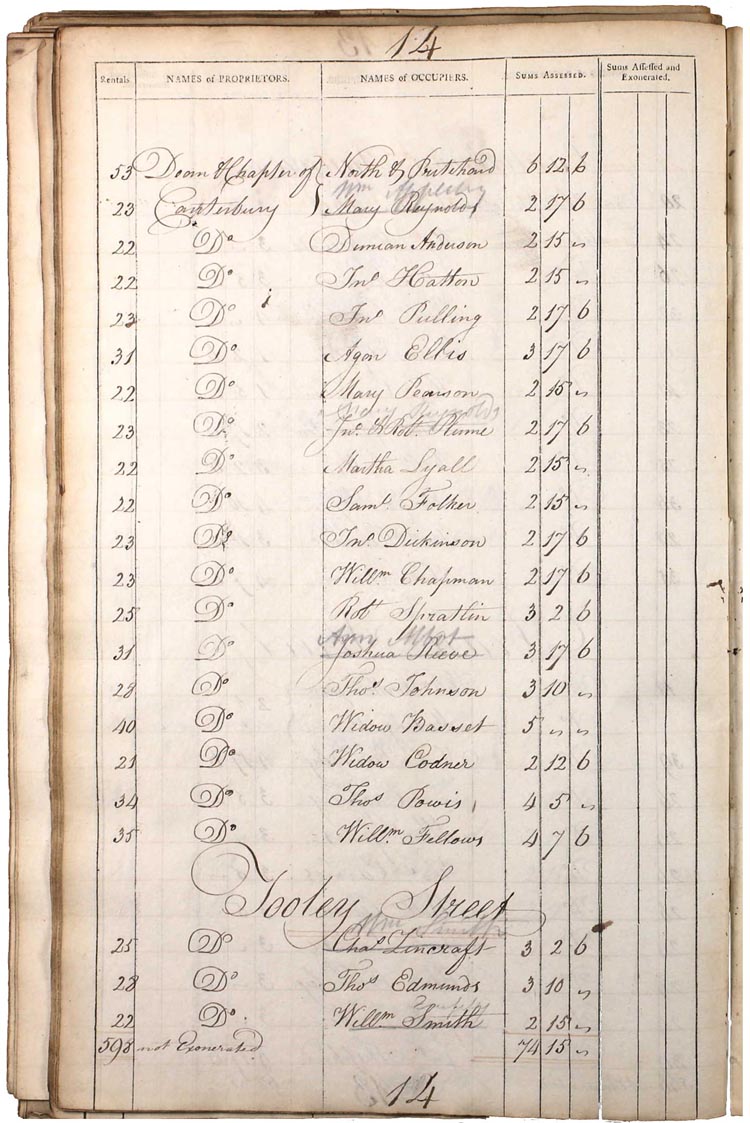 14
Rentals NAMES of PROPRIETORS. NAMES of OCCUPIERS. SUMS ASSESSED. Sums Assessed and Exonerated.
53 Dean & Chapter of North & Pritchard 6 12 6
Wm
23 Canterbury Mary Reynolds 2 17 6
22 Do Duncan Anderson 2 15 "
22 Do Jno Hatton 2 15 "
23 Do Jno Pulling 2 17 6
31 Do Agon Ellis 3 17 6
22 Do Mary Pearson 2 15 "
Mary Reynolds
23 Do Jno & Robt Plume 2 17 6
22 Do Martha Lyall 2 15 "
22 Do Saml Folker 2 15 "
23 Do Jno Dickinson 2 17 6
23 Do Willm Chapman 2 17 6
25 Do Robt Spratlin 3 2 6
Abbot
31 Do Joshua Reeve 3 17 6
28 Do Thos Johnson 3 10 "
40 Do Widow Basset 5 " "
21 Do Widow Codner 2 12 6
34 Do Thos Powis 4 5 "
35 Do Willm Fellows 4 7 6
Tooley Street
Wm Smith
25 Do Chas Lincraft 3 2 6
28 Do Thos Edmunds 3 10 "
22 Do Willm Smith 2 15 "
598 not Exonerated 74 15 "
14